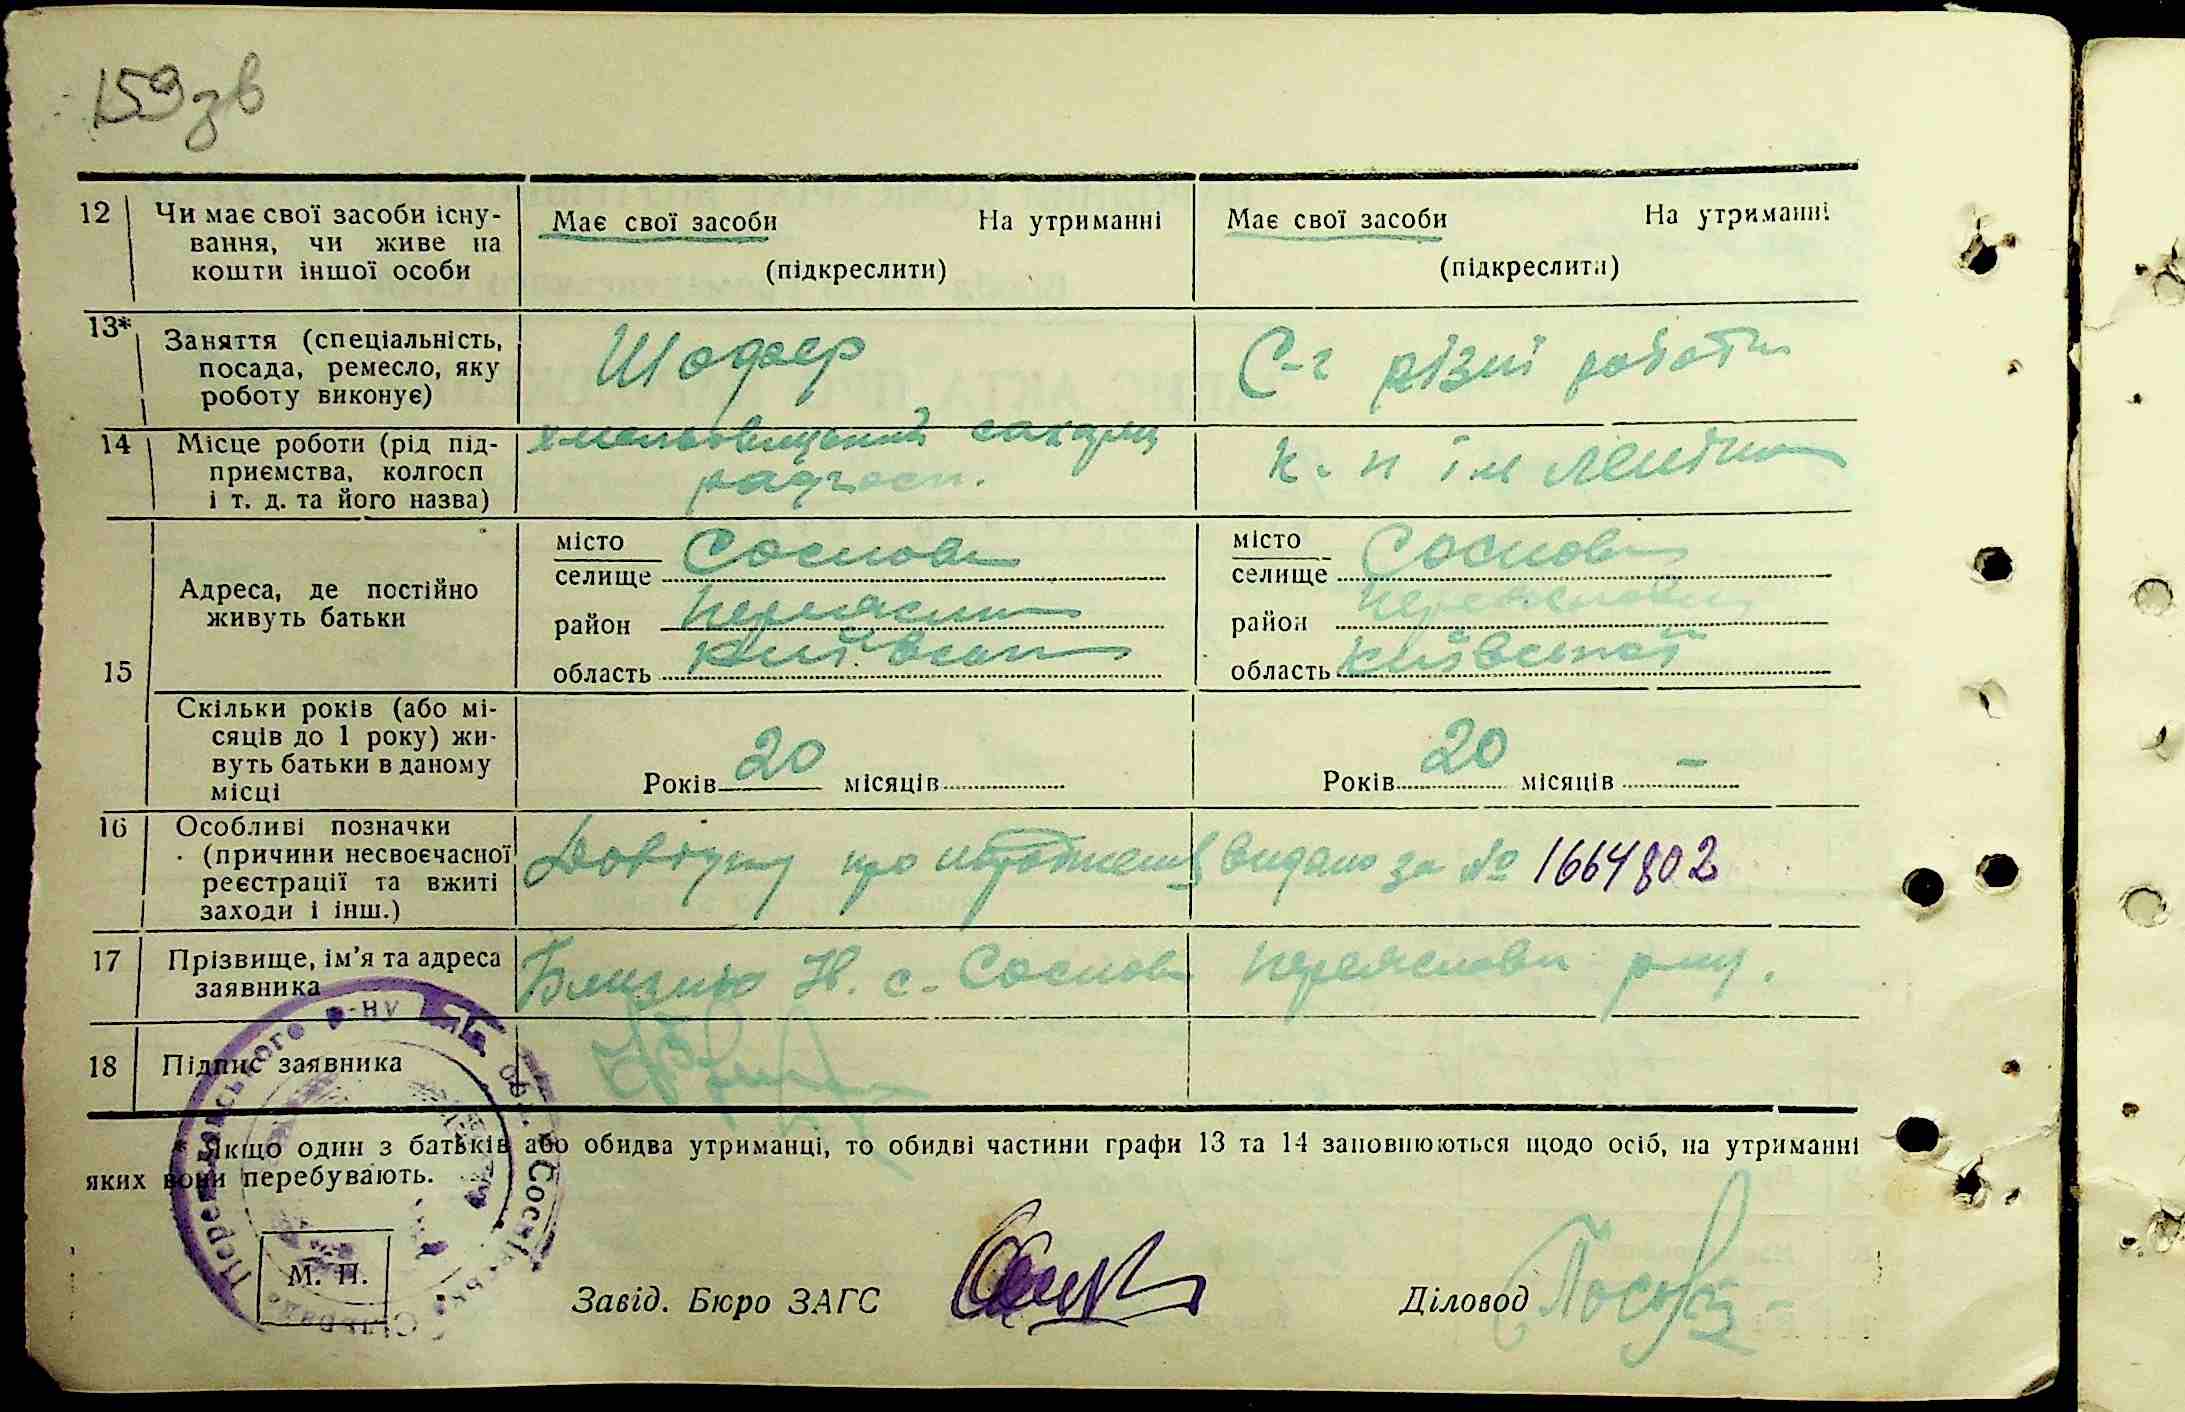 159зв
12 Чи має свої засоби існу- Має свої засоби На утриманні Має свої засоби На утриманні
вання, чи живе на
кошти іншої особи (підкреслити) (підкреслити)
13* Заняття (спеціальність, Шофер С-г різні роботи
посада, ремесло, яку
роботу виконує)
14 Місце роботи (рід під- к. п ім Леніна
приємства, колгосп радгосп.
і т. д. та його назва)
місто Соснова місто Соснова
селище селище
Адреса, де постійно
живуть батьки район район
15 область область Київської
Скільки років (або мі-
сяців до 1 року) жи-
вуть батьки в даному Років 20 місяців Років 20 місяців –
місці
16 Особливі позначки
(причини несвоєчасної Довідку про народження видано за № 1664802
реєстрації та вжиті
заходи і інш.)
17 Прізвище, ім'я та адреса Близню Н. с. Соснова
заявника
18 Підпис заявника
* Якщо один з батьків або обидва утриманці, то обидві частини графи 13 та 14 заповнюються щодо осіб, на утриманні
яких вони перебувають.
М. П.
Завід. Бюро ЗАГС Діловод